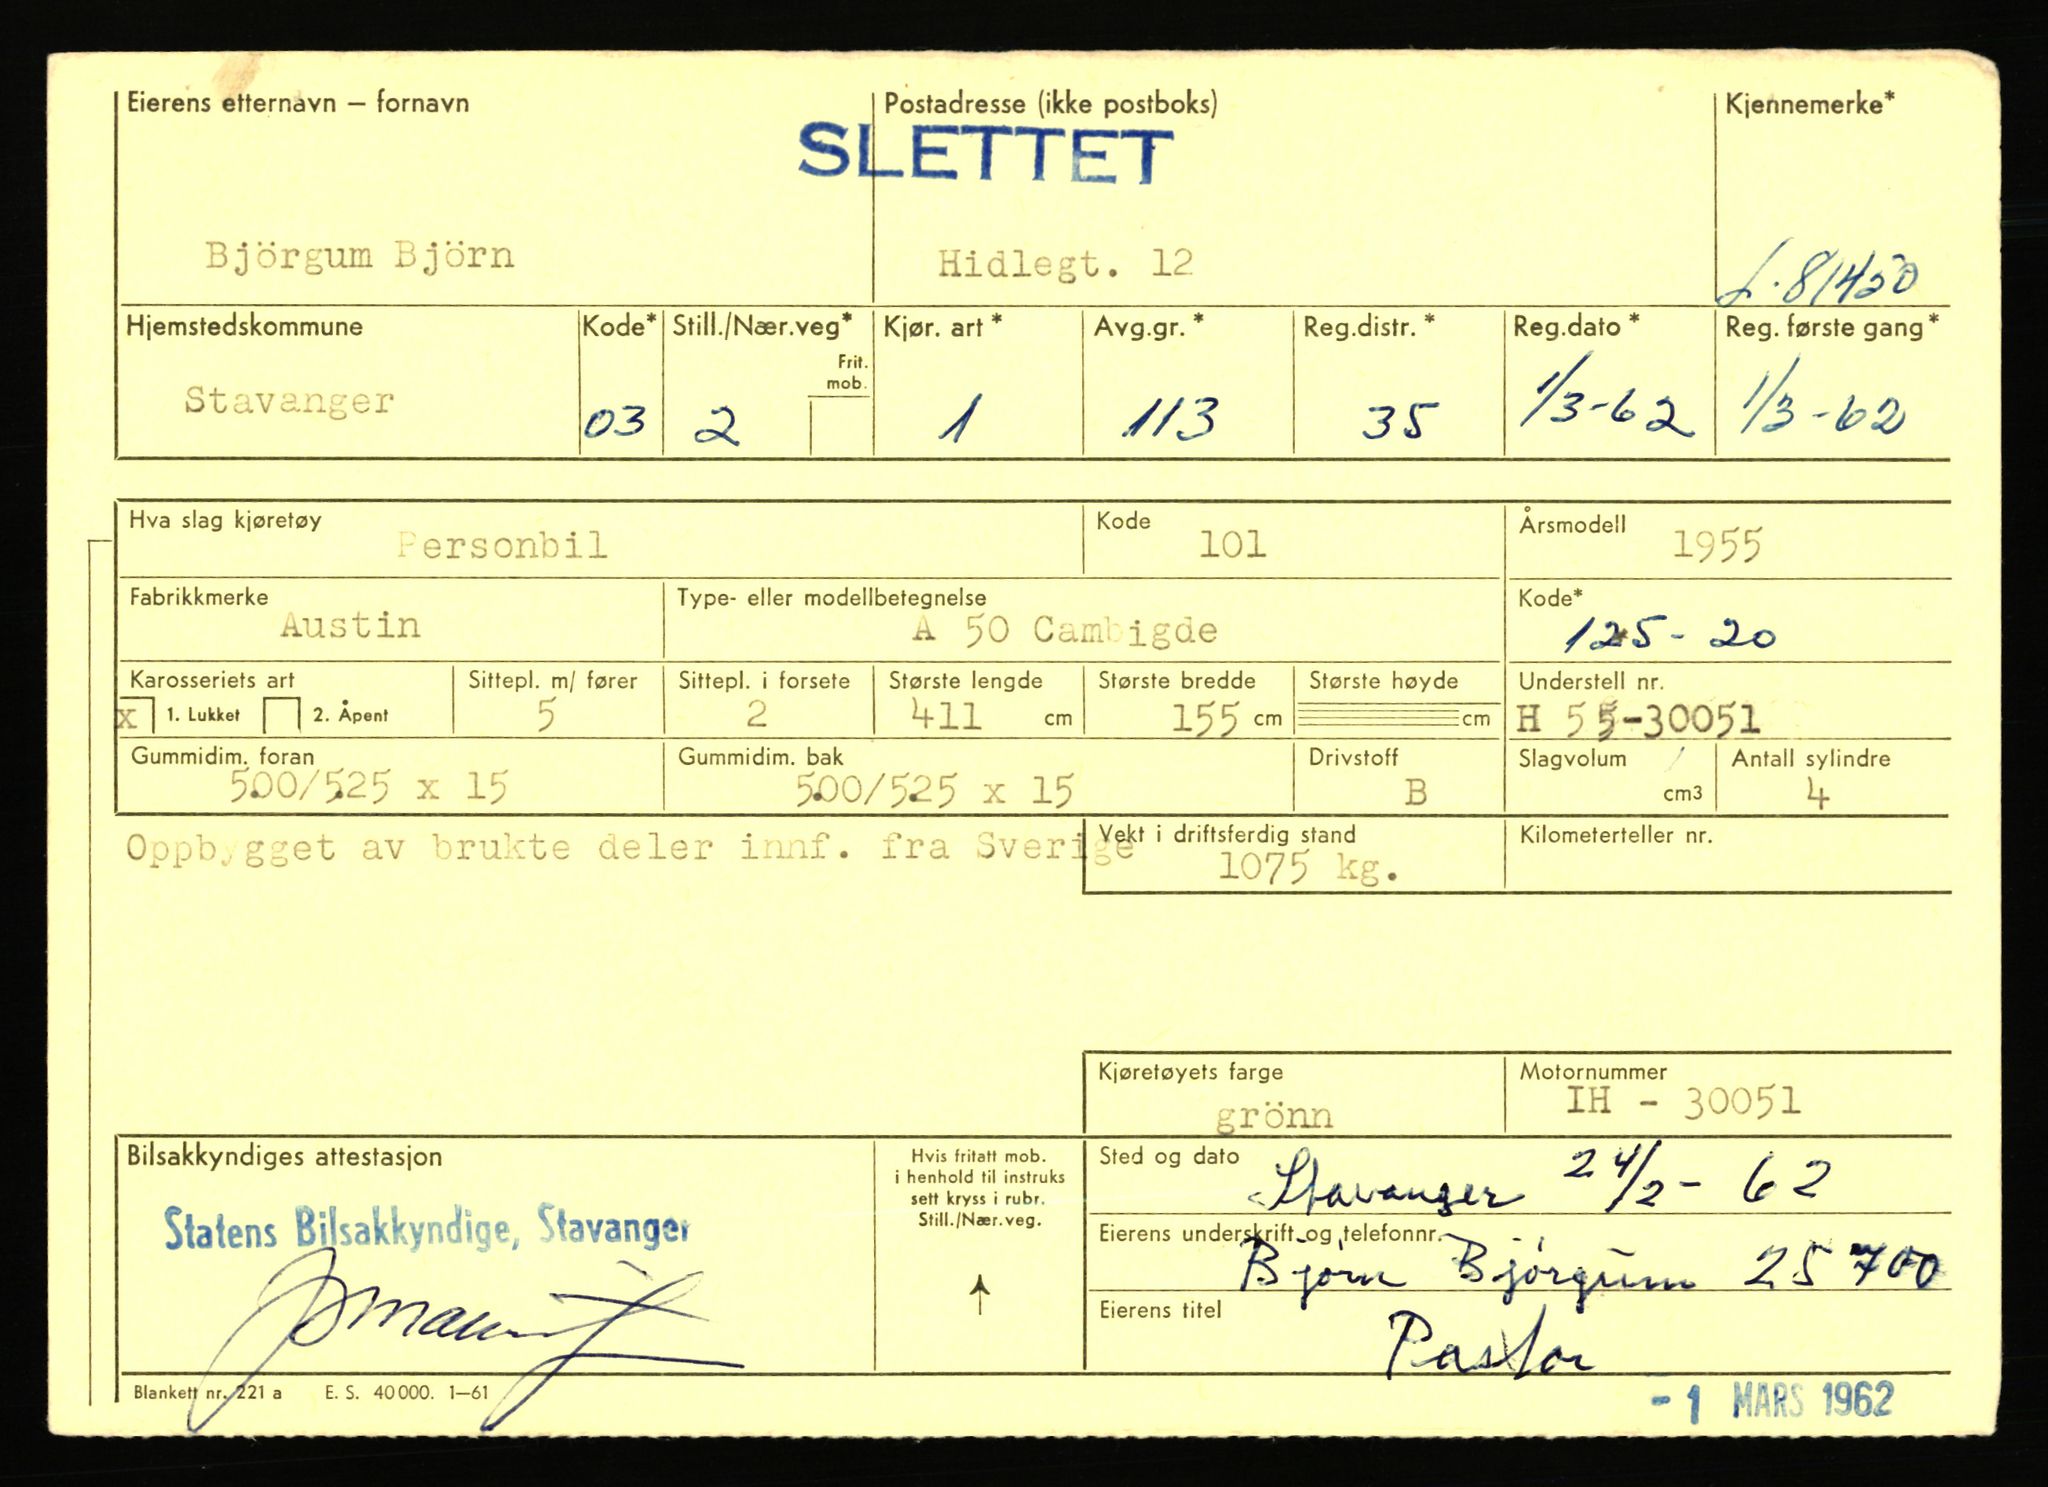 Eierens etternavn – fornavn Postadresse (ikke postboks) Kjennemerke*
SLETTET
Björgum Björn Hidlegt. 12 L.81450
Hjemstedskommune Kode* Still./Nær.veg* Kjør. art * Avg.gr. * Reg.distr. * Reg.dato * Reg. første gang*
Frit. mob.
Stavanger 03 2 1 113 35 1/3-62 1/3-62
Hva slag kjøretøy Kode Årsmodell
Personbil 101 1955
Fabrikkmerke Type- eller modellbetegnelse Kode*
Austin A 50 Cambigde 125-20
Karosseriets art Sittepl. m/ fører Sittepl. i forsete Største lengde Største bredde Største høyde Understell nr.
x 1. Lukket 2. Åpent 5 2 411 cm 155 cm cm H 55-30051
Gummidim. foran Gummidim. bak Drivstoff Slagvolum Antall sylindre
5.00/5.25 x 15 5.00/5.25 x 15 B cm3 4
Oppbygget av brukte deler innf. fra Sverige Vekt i driftsferdig stand Kilometerteller nr.
1075 kg.
Kjøretøyets farge Motornummer
grönn IH - 30051
Bilsakkyndiges attestasjon Hvis fritatt mob. i henhold til instruks sett kryss i rubr. Still./Nær.veg. Sted og dato
Stavanger 24/2-62
Statens Bilsakkyndige, Stavanger Eierens underskrift og telefonnr.
Bjørn Bjørgum 25 700
Eierens titel
Pastor
Blankett nr. 221 a E. S. 40 000. 1–61
-1 MARS 1962